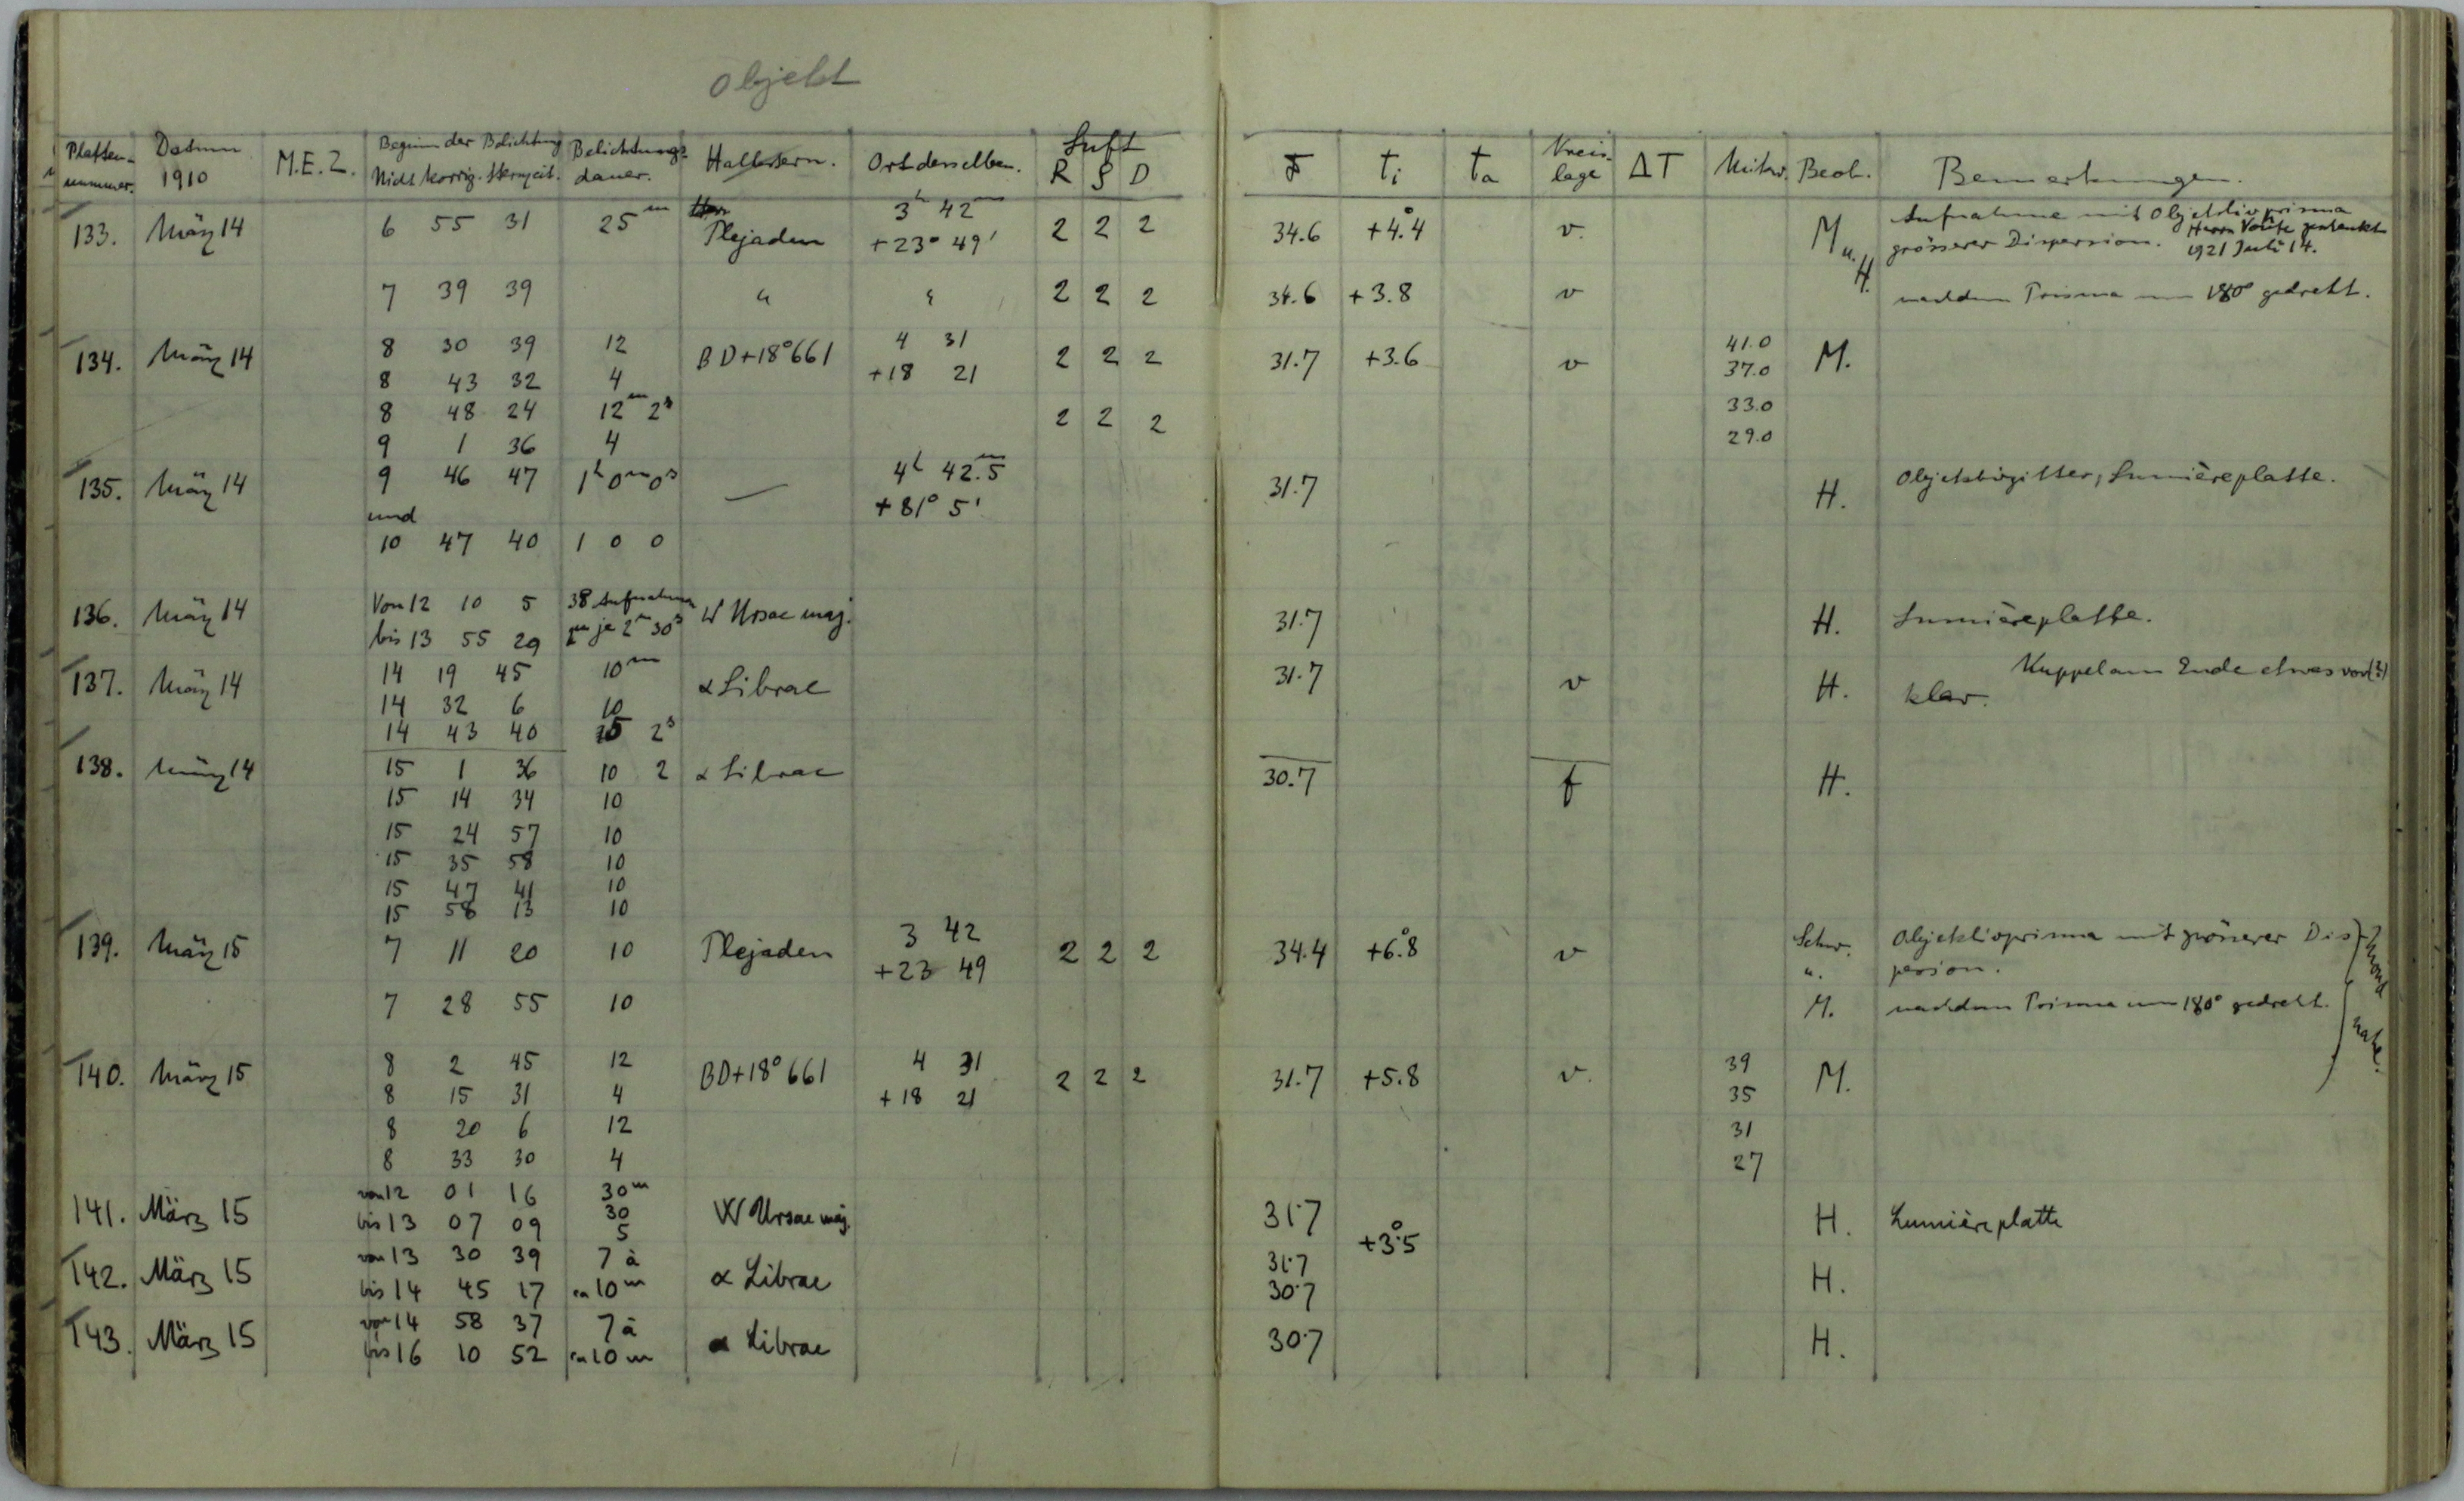 Objekt
Platten-nummer. Datum 1910 M.E.Z. Beginn der Belichtung Nicht korrig. Sternzeit. Belichtungsdauer. Haltestern. Ort desselben. Luft R S D F ti ta Kreislage ΔT Mikr. Beob. Bemerkungen.
133. März 14 6 55 31 25m Plejaden 3h 42m 2 2 2 34.6 +4°.4 v. M u. H. Aufnahme mit Objektivprisma
+23° 49' grösserer Dispersion. Herrn Voûte geschenkt
1921 Juli 14.
7 39 39 " " 2 2 2 34.6 +3.8 v nachdem Prisma um 180° gedreht.
134. März 14 8 30 39 12 BD+18°661 4 31 2 2 2 31.7 +3.6 v 41.0 M.
8 43 32 4 +18 21 37.0
8 48 24 12m 2s 2 2 2 33.0
9 1 36 4 29.0
135. März 14 9 46 47 1h 0m 0s — 4h 42m.5 31.7 H. Objektivgitter, Lumièreplatte.
und +81° 5'
10 47 40 1 0 0
136. März 14 Von 12 10 5 38 Aufnahmen W Ursae maj. 31.7 H. Lumièreplatte.
bis 13 55 29 zu je 2m 30s
137. März 14 14 19 45 10m α Librae 31.7 v H. Kuppel am Ende etwas vor(?)
14 32 6 10 klar.
14 43 40 15 2s
138. März 14 15 1 36 10 2 α Librae 30.7 f H.
15 14 34 10
15 24 57 10
15 35 58 10
15 47 41 10
15 58 13 10
139. März 15 7 11 20 10 Plejaden 3 42 2 2 2 34.4 +6°.8 v Schw. u. M. Objektivprisma mit grösserer Dis-
+23 49 persion.
7 28 55 10 nachdem Prisma um 180° gedreht.
Mond nahe.
140. März 15 8 2 45 12 BD+18°661 4 31 2 2 2 31.7 +5.8 v. 39 M.
8 15 31 4 +18 21 35
8 20 6 12 31
8 33 30 4 27
141. März 15 von 12 01 16 30m W Ursae maj. 31.7 +3°.5 H. Lumière platte
bis 13 07 09 30
5
142. März 15 von 13 30 39 7 à α Librae 31.7 H.
bis 14 45 17 ca 10m 30.7
143. März 15 von 14 58 37 7 à α Librae 30.7 H.
bis 16 10 52 ca 10m